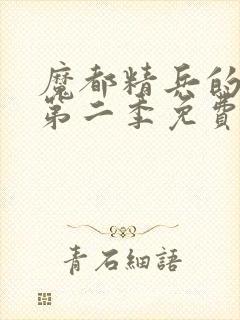 魔都精兵的
第二季免費
青石細語